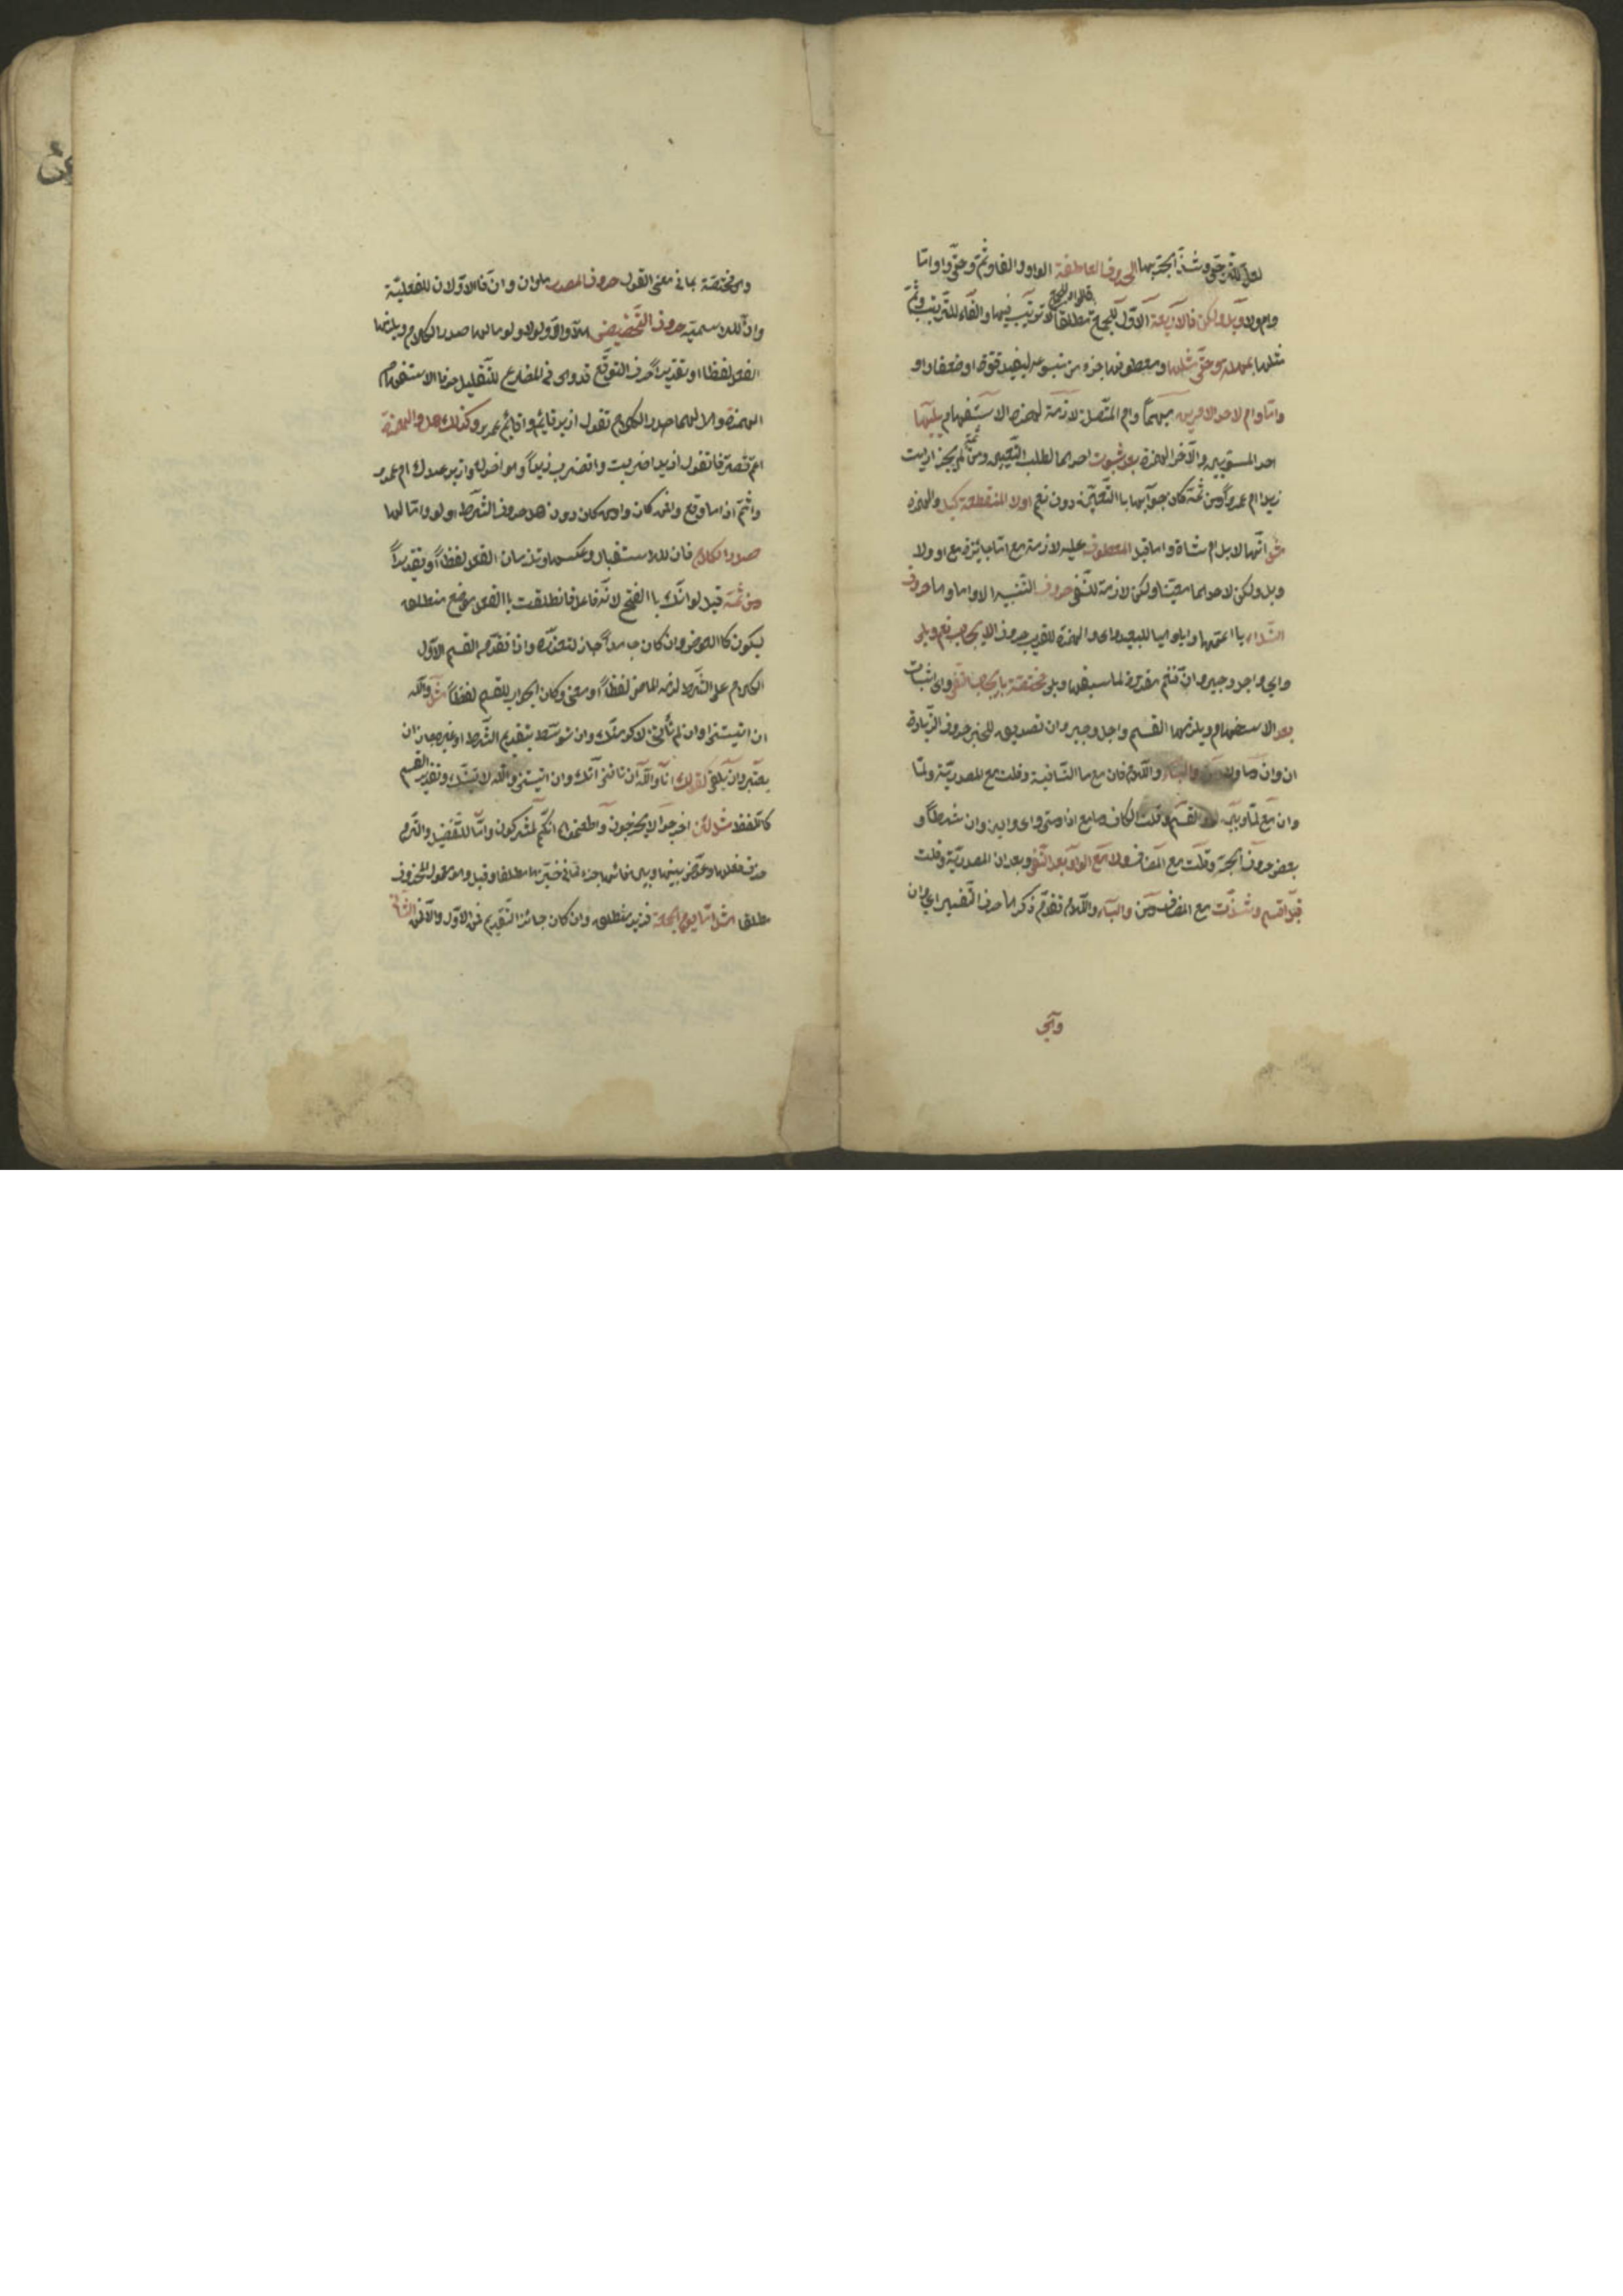 لعل للترجي وشذ الجر بها الحروف العاطفة الواو والفا وثم وحتى واو واما
وام ولا وبل ولكن فالاربعة الاول للجمع فالواو للجمع مطلقا لا ترتيب فيها والفاء للترتيب وثم
مثلها بمهلة وحتى مثلها ومعطوفها جزء من متبوعه ليفيد قوة او ضعفا واو
واما وام لاحد الامرين مبهما وام المتصلة لازمة لهمزة الاستفهام يليها
احد المستويين والآخر الهمزة بعد ثبوت احدهما لطلب التعيين ومن ثمة لم يجز ارايت
زيدا ام عمروا ومن ثمة كان جوابها باالتعيين دون نعم اولا المنقطعة كبل والهمزة
مثل انها لابل ام شاة واما قبل المعطوف عليه لازمة مع اما جايزة مع او ولا
وبل ولكن لاحدهما معينا ولكن لازمة للنفي حروف التنبيه الا واما وها حروف
النداء يا اعمها وايا وهيا للبعيد واى والهمزة للقريب حروف الايجاب نعم وبلى
واي واجل وجير وان فنعم مقررة لما سبقها وبلى مختصة بايجاب النفي واى اثبات
بعد الاستفهام ويلزمها القسم واجل وجير وان تصديق للخبر حروف الزيادة
ان وان وما ولا ومن والباء واللام فان مع ما النافية وقلت مع المصدرية ولما
وان مع لما وبين لو والقسم وقلت الكاف وما مع اذا ومتى واى واين وان شرطا و
بعض حروف الجر وقلت مع المضاف ولا مع الواو بعد النفي وبعد ان المصدرية وقلت
قبل اقسم وشذت مع المضاف ومن والباء واللام تقدم ذكرها حرفا التفسير اي وان
وآي
وهي مختصة بما في معنى القول حروف المصدر ما وان وان فالاولان للفعلية
وان للاسمية حروف التحضيض هلا والا ولولا ولوما لها صدر الكلام ويلزمها
الفعل لفظا او تقديرا حرف التوقع قد وهى في المضارع للتقليل حرفا الاستفهام
الهمزة وهل لهما صدر الكلام تقول ازيد قايم واقايم عمرو وكذلك هل والهمزة
اعم تصرفا تقول ازيدا ضربت واتضرب زيدا وهو اخوك وازيد عندك ام عمرو
واثم اذا ما وقع وافمن كان واومن كان دون هل حروف الشرط ان ولو واما لها
صدر الكلام فان للاستقبال ولو عكسها وتلزمان الفعل لفظا او تقديرا
ومن ثمة قيل لو انك باالفتح لانه فاعل وانطلقت باالفعل موضع منطلق
ليكون كاالعوض وان كان جامدا جاز لتعذره واذا تقدم القسم الاول
الكلام على الشرط لزمه الماضي لفظا او معنى وكان الجواب للقسم لفظا مثل والله
ان اتيتني اوان لم تأتني لاكرمتك وان توسط بتقديم الشرط او غيره جاز ان
يعتبر وان يلقى كقولك انا والله ان تاتني آتك وان اتيتني والله لاتينك وتقدير القسم
كاللفظ مثل لئن اخرجوا لا يخرجون وان اطعتموهم انكم لمشركون واما للتفصيل والتزم
حذف فعلها وعوض بينها وبين فائها جزء مما في حيزها مطلقا وقيل هو معمول المحذوف
مطلقا مثل اما يوم الجمعة فزيد منطلق وان كان جائز التقديم فمن الاول والا فمن الثاني